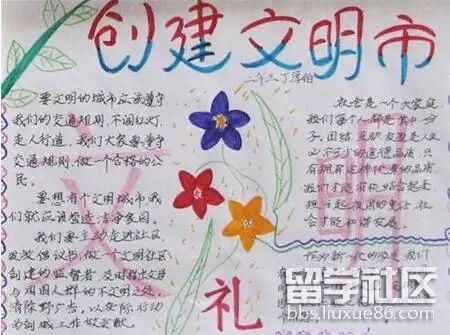 创建文明市
二年三 丁厚伯
要文明的城市应该遵守
我们的交通规则,不闯红灯,
走人行道,我们大家要遵守
交通规则,做一个合格的公
民。
要想有个文明城市我
们就应该营造洁净家园。
我们要主动走进社区
发放倡议书,做一个文明社区
创建的监督者,及时指出父母
与周围人群的不文明之处,
清除野广告,以实际行动
为创城工作做贡献。
文
明
礼
社会是一个大家庭
我们每个人都是其中一分
子,团结、互助、友爱是人生
必不可少的道德品质,只
有拥有这种优秀的品质
我们才能有机组合起来
担立起祖国的重任,社
会才能和谐发展。
作为新一代的
我们
留学社区
bbs.liuxue86.com